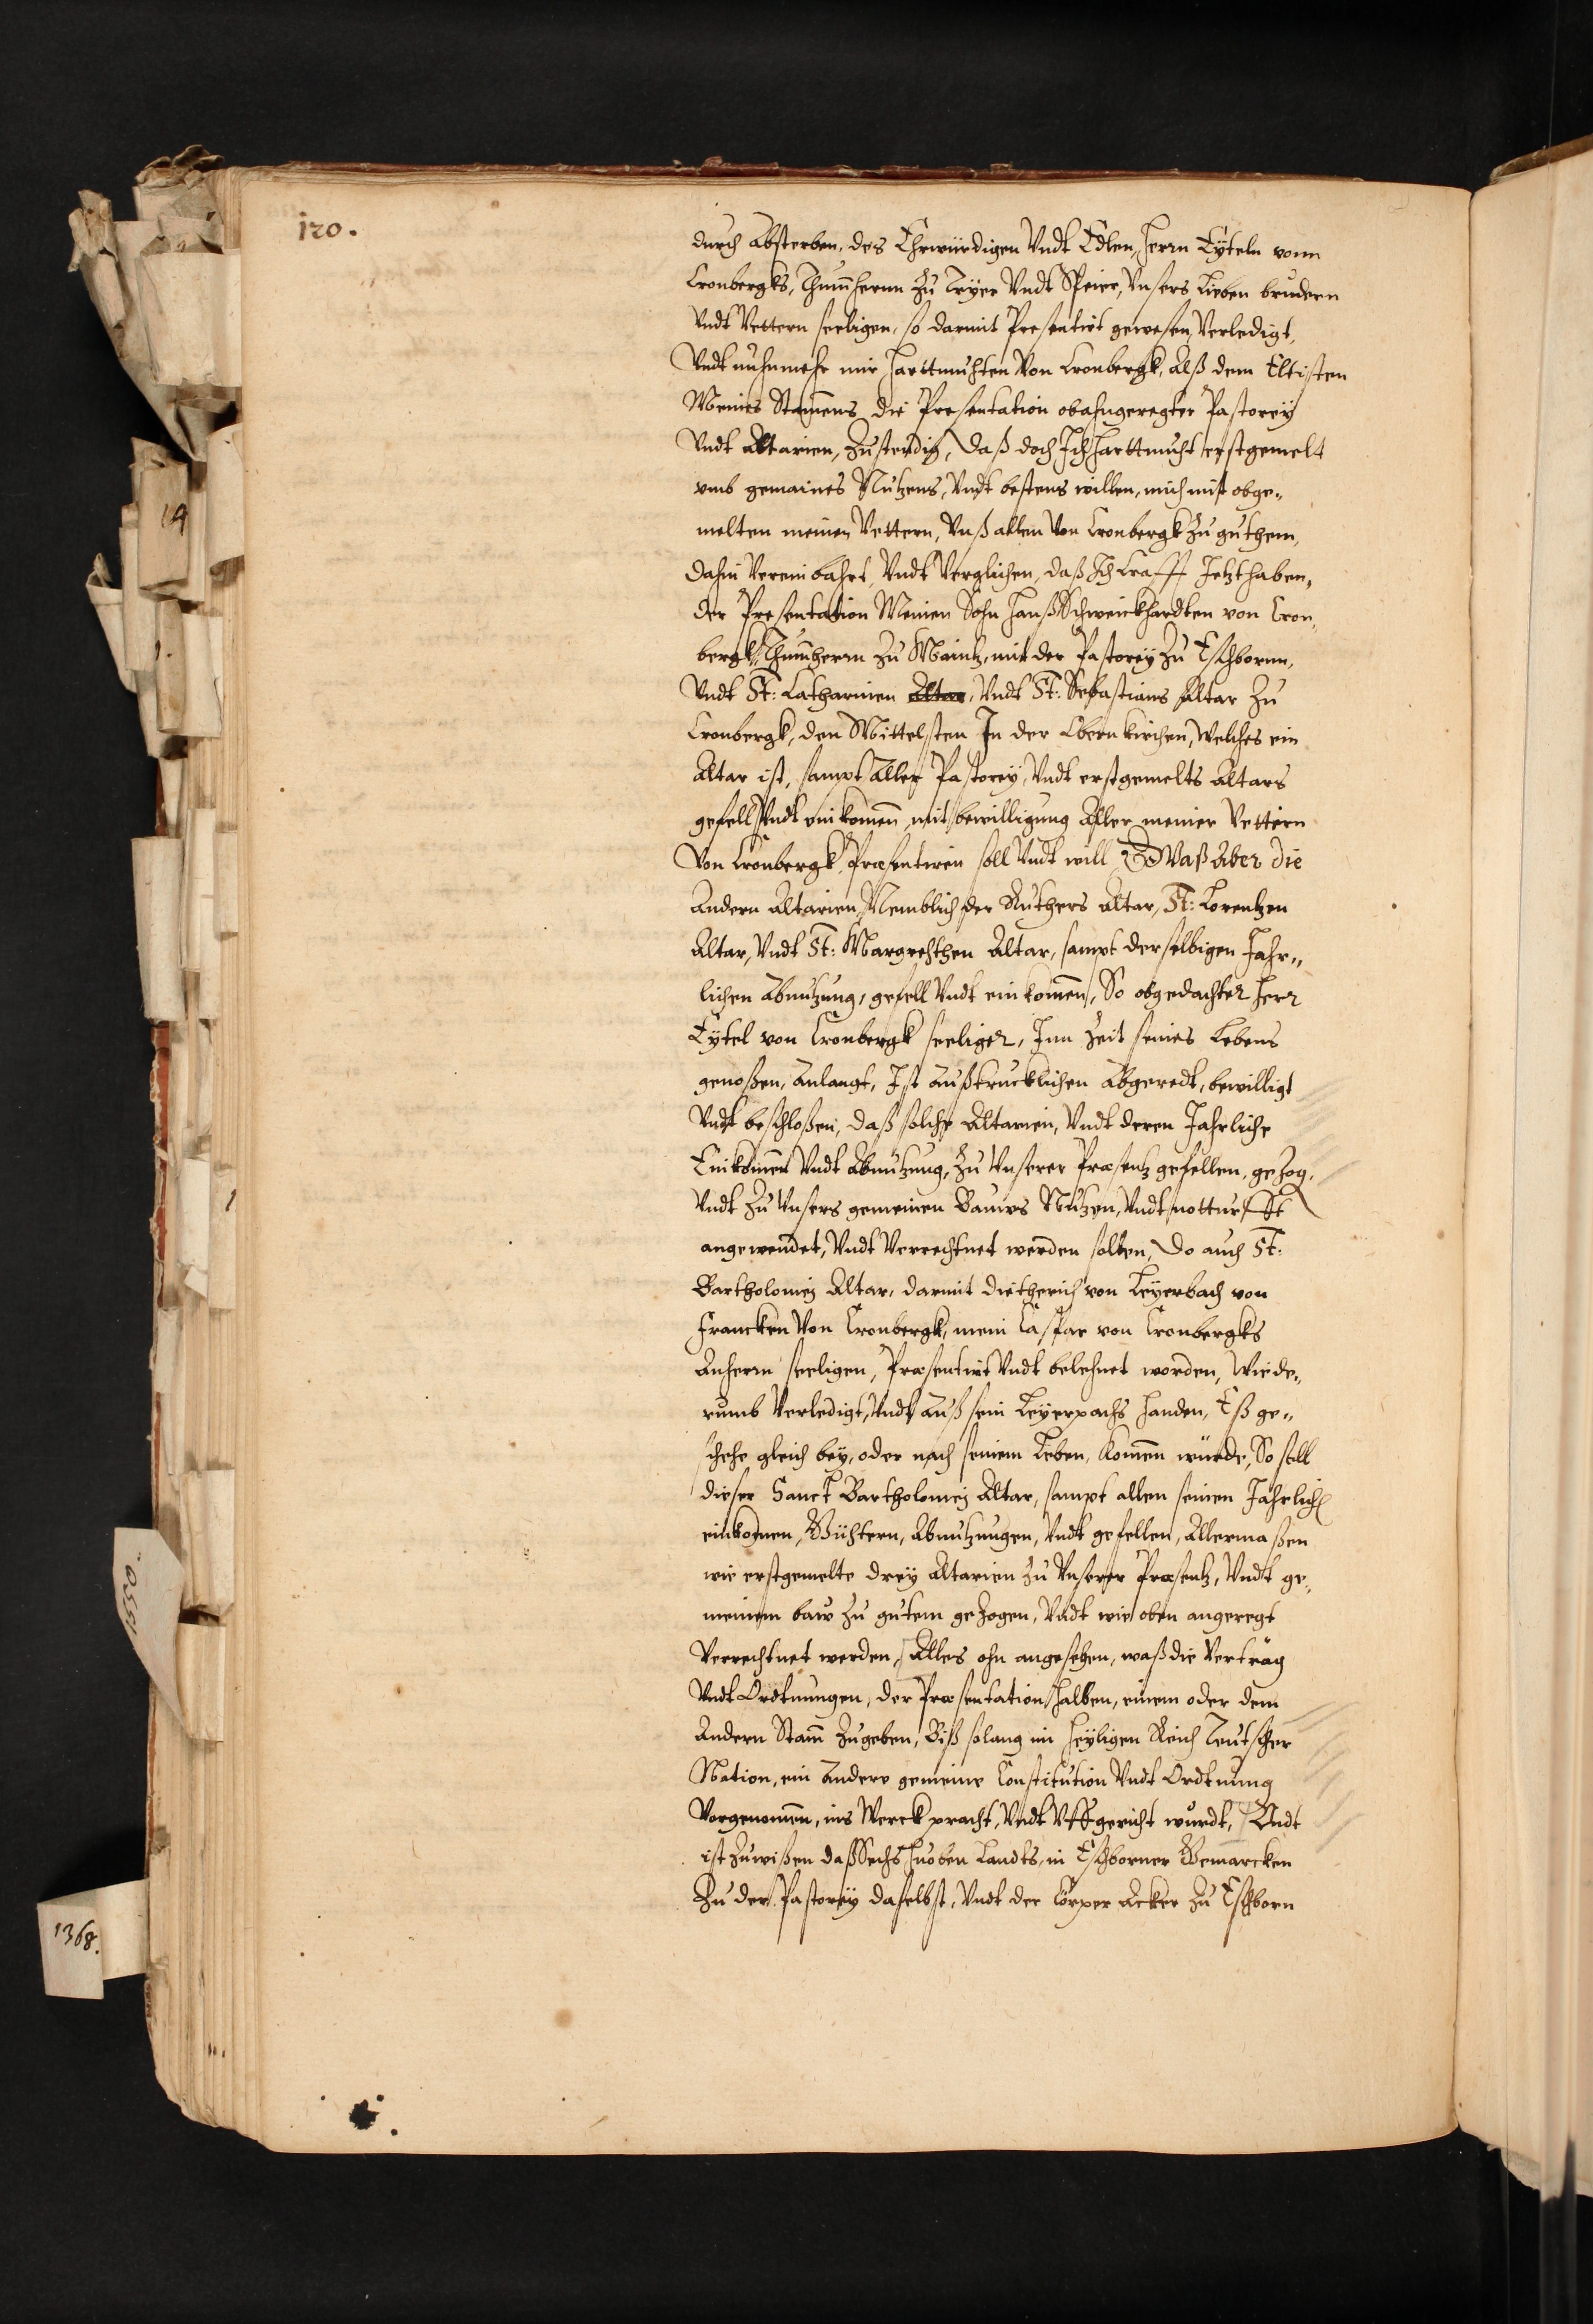 120.
durch Absterben, des Ehrwürdigen Vndt Edlen, Herrn Eyteln vonn
Cronbergks, Thumherrn zu Trÿer Vndt Speier, Vnsers Lieben brudern
Vndt Vettern seeligen, so darmit Presentirt gewesen, Verledigt,
Vndt nuhnmehr mir Harttmuhten Von Cronbergk, Alß dem Eltisten
Meines Stammens die Presentation obahngeregter Pastoreÿ
Vndt Altarien, zustendig, daß doch Ich Harttmuht erstgemelt
vmb gemaines Nutzens, Vndt bestens willen, mich mit obge„
melten meinen Vettern, Vnß allen Von Cronbergk zu guthem,
dahin Vereinbahrt, Vndt Verglichen, daß Ich Crafft Jetzthaben„
der Presentation Meinen Sohn Hanß Schweickhardten von Cron„
bergk, Thumherrn zu Maintz, mit der Pastoreÿ zu Eschbornn,
Vndt St: Catharinen Altar, Vndt St: Sebastians Altar zu
Cronbergk, den Mittelsten In der Obern kirchen, Welches ein
Altar ist, sampt aller Pastoreÿ, Vndt erstgemelts Altars
gefell Vndt einkommen, mit bewilligung Aller meiner Vettern
Von Cronbergk, Præsentiren soll Vndt will, Waß Aber die
Andern Altarien, Nemblich der Ruthers Altar, St: Lorentzen
Altar, Vndt St: Margrethen Altar, sampt derselbigen Jahr„
lichen Abnutzung, gefell Vndt einkommen, So obgedachter Herr
Eÿtel von Cronbergk seeliger, Inn Zeit seines Lebens
genoßen, Anlangt, Ist Außtrucklichen Abgeredt, bewilligt
Vndt beschloßen, daß solche Altarien, Vndt deren Jahrliche
Einkommen Vndt Abnutzung, zu Vnserer Præsentz gefellen, gezog,
Vndt zu Vnsers gemeinen Bauws Nutzen, Vndt notturfft
angewendet, Vndt Verrechtnet werden sollen, Do auch St:
Bartholomej Altar, darmit Dietherich von Leÿerbach von
Francken Von Cronbergk, mein Caspar von Cronbergks
Anherrn seeligen, Præsentirt Vndt belehnet worden, Wiede„
rumb Verledigt, Vndt Auß sein Leÿerpachs Handen, Eß ge„
schehe gleich beÿ, oder nach seinem Leben, kommen würde, So soll
dieser Sanct Bartholomej Altar, sampt allen seinen Jahrlich
einkommen, Güthern, Abnutzungen, Vndt gefellen, Allermaßen
wie erstgemelte dreÿ Altarien zu Vnserer Præsentz, Vndt ge„
meinem baw zu gutem gezogen, Vndt wie oben angeregt
Verrechtnet werden, Alles ohn angesehen, waß die Verträg
Vndt Ordtnungen, der Præsentation halben, einem oder dem
Andern Stam zugeben, Biß solang im Heÿligen Reich Teutscher
Nation, ein Andere gemeine Constitution Vndt Ordtnung
Vorgenommen, ins Werck pracht, Vndt Vffgericht wurdt, Vndt
ist zuwißen daß Sechs Huoben Landts, in Eschborner Gemarcken
Zu der Pastoreÿ daselbst, Vndt der Cörper Acker zu Eschborn
14
1.
1550.
1368.